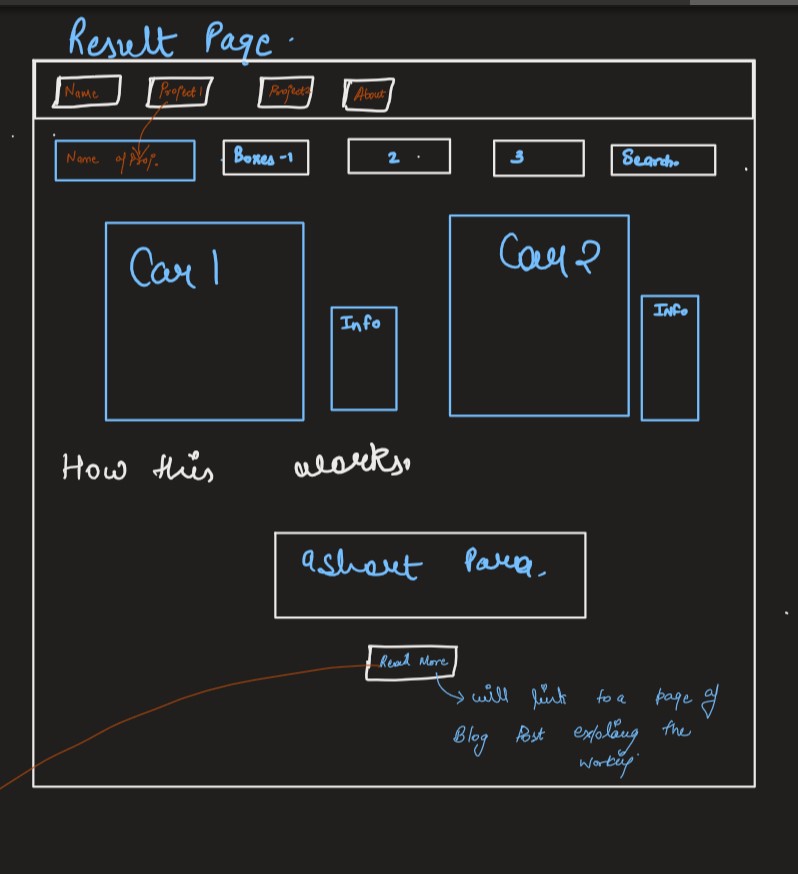 Result Page.
Name Project 1 Project2 About
Name of Proj. Boxes -1 2 3 Search.
Car 1 Car 2
Info Info
How this works.
a short Para.
Read More
will link to a page of
Blog Post the